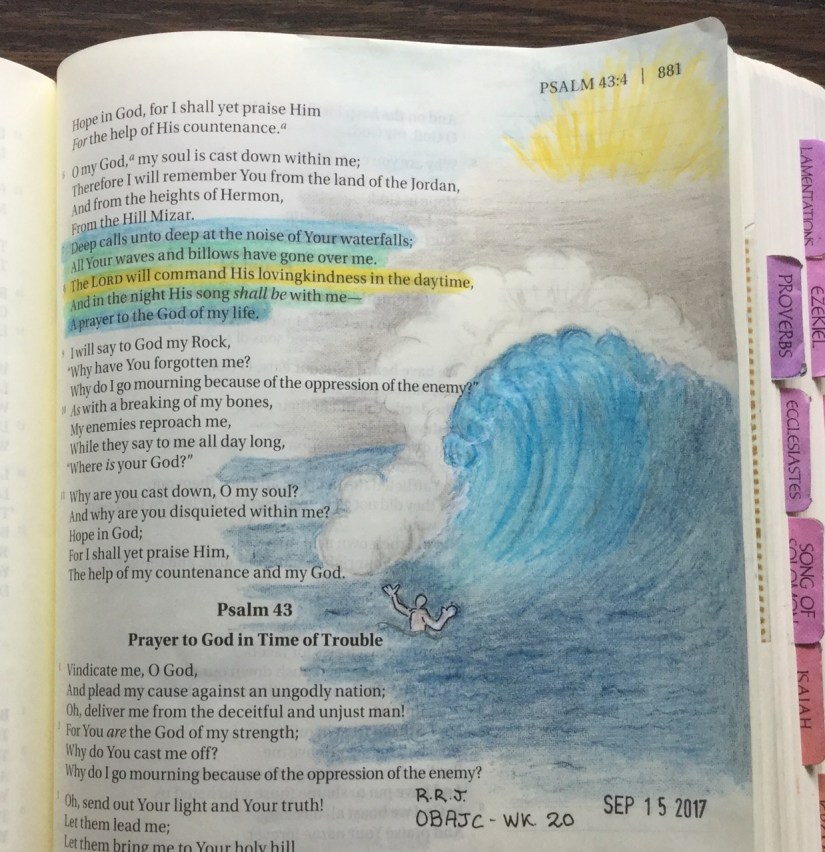 PSALM 43:4 | 881
Hope in God, for I shall yet praise Him
For the help of His countenance.a
6 O my God,a my soul is cast down within me;
Therefore I will remember You from the land of the Jordan,
And from the heights of Hermon,
From the Hill Mizar.
7 Deep calls unto deep at the noise of Your waterfalls;
All Your waves and billows have gone over me.
8 The LORD will command His lovingkindness in the daytime,
And in the night His song shall be with me—
A prayer to the God of my life.
9 I will say to God my Rock,
“Why have You forgotten me?
Why do I go mourning because of the oppression of the enemy?”
10 As with a breaking of my bones,
My enemies reproach me,
While they say to me all day long,
“Where is your God?”
11 Why are you cast down, O my soul?
And why are you disquieted within me?
Hope in God;
For I shall yet praise Him,
The help of my countenance and my God.
Psalm 43
Prayer to God in Time of Trouble
1 Vindicate me, O God,
And plead my cause against an ungodly nation;
Oh, deliver me from the deceitful and unjust man!
2 For You are the God of my strength;
Why do You cast me off?
Why do I go mourning because of the oppression of the enemy?
3 Oh, send out Your light and Your truth!
Let them lead me;
Let them bring me to Your holy hill
R.R.J.
OBAJC - WK 20
SEP 15 2017
LAMENTATIONS
EZEKIEL
PROVERBS
ECCLESIASTES
SONG OF
SOLOMON
ISAIAH